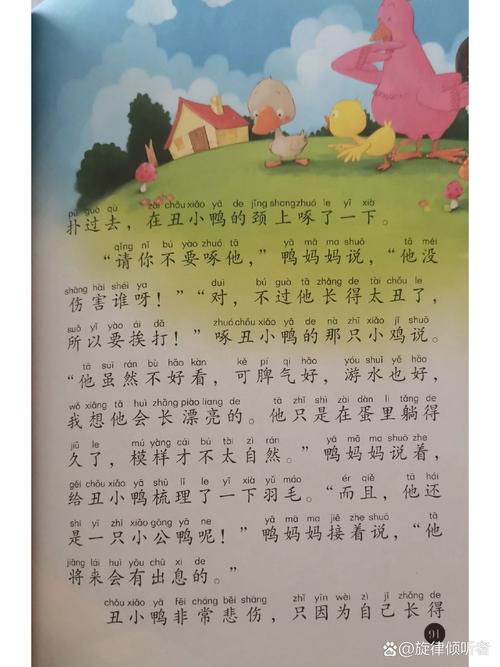 pū guò qù zài chǒu xiǎo yā de jǐng shang zhuó le yī xià
扑过去，在丑小鸭的颈上啄了一下。
qǐng nǐ bú yào zhuó tā yā mā ma shuō tā méi
“请你不要啄他，”鸭妈妈说，“他没
shāng hài shéi ya duì bú guò tā zhǎng de tài chǒu le
伤害谁呀！”“对，不过他长得太丑了，
suǒ yǐ yào ái dǎ zhuó chǒu xiǎo yā de nà zhī xiǎo jī shuō
所以要挨打！”啄丑小鸭的那只小鸡说。
tā suī rán bù hǎo kàn kě pí qi hǎo yóu shuǐ yě hǎo
“他虽然不好看，可脾气好，游水也好，
wǒ xiǎng tā huì zhǎng piào liang de tā zhǐ shì zài dàn li tǎng de
我想他会长漂亮的。他只是在蛋里躺得
jiǔ le mú yàng cái bú tài zì rán yā mā ma shuō zhe
久了，模样才不太自然。”鸭妈妈说着，
gěi chǒu xiǎo yā shū lǐ le yī xià yǔ máo ér qiě tā hái
给丑小鸭梳理了一下羽毛。“而且，他还
shì yī zhī xiǎo gōng yā ne yā mā ma jiē zhe shuō tā
是一只小公鸭呢！”鸭妈妈接着说，“他
jiāng lái huì yǒu chū xi de
将来会有出息的。”
chǒu xiǎo yā fēi cháng bēi shāng zhǐ yīn wèi zì jǐ zhǎng de
丑小鸭非常悲伤，只因为自己长得
91
@旋律倾听客